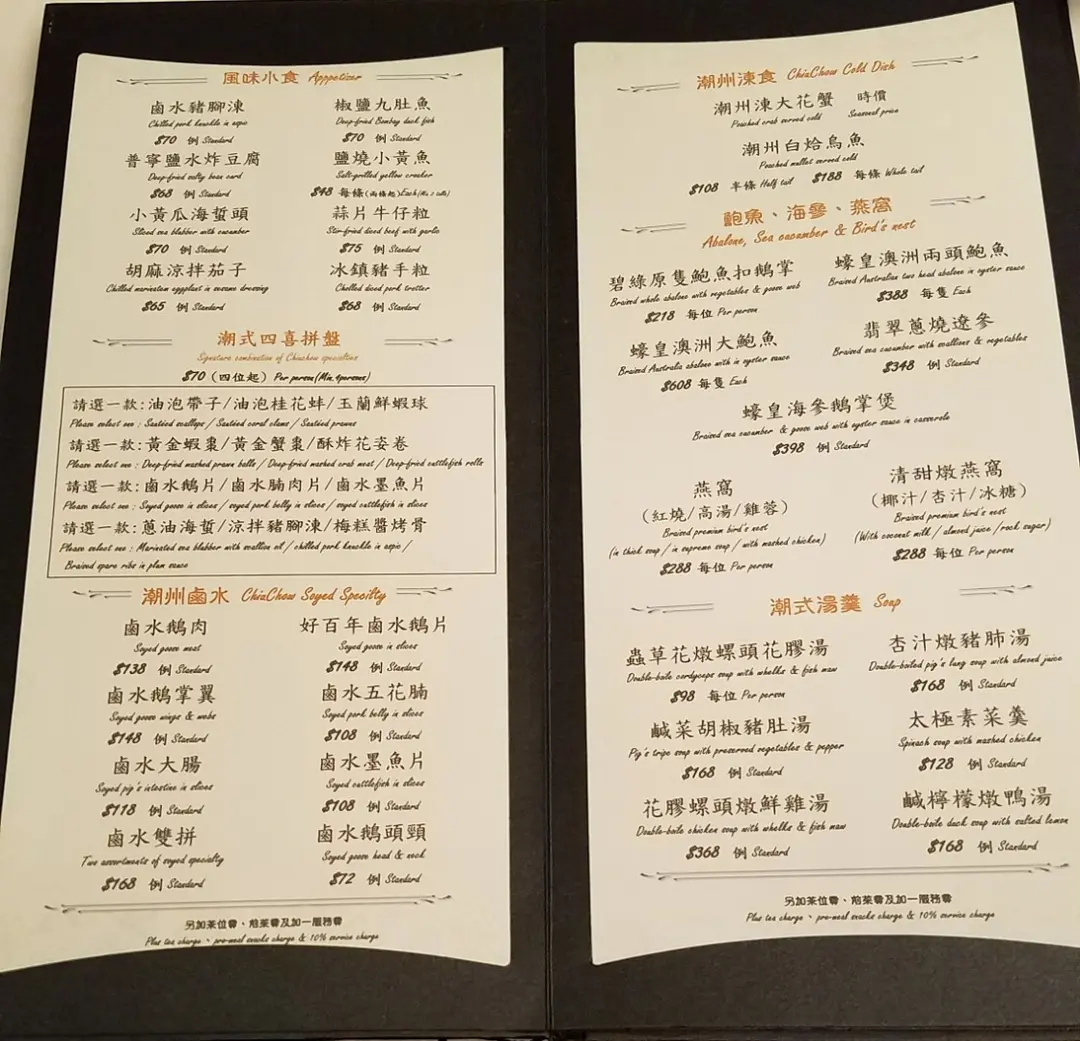 風味小食 Apppetizer
鹵水豬腳涷
Chilled pork knuckle in aspic
$70 例 Standard
椒鹽九肚魚
Deep-fried Bombay duck fish
$70 例 Standard
普寧鹽水炸豆腐
Deep-fried salty bean curd
$68 例 Standard
鹽燒小黃魚
Salt-grilled yellow croaker
$48 每條(兩條起)Each(Min 2 tails)
小黃瓜海蜇頭
Sliced sea blubber with cucumber
$70 例 Standard
蒜片牛仔粒
Stir-fried diced beef with garlic
$75 例 Standard
胡麻涼拌茄子
Chilled marinatem eggplant in sesame dressing
$65 例 Standard
冰鎮豬手粒
Cholled diced pork trotter
$68 例 Standard
潮式四喜拼盤
Signature combination of Chiuchow specialties
$70 (四位起) Per person(Min.4persons)
請選一款:油泡帶子/油泡桂花蚌/玉蘭鮮蝦球
Please select one : Sautéed scallops / Sautéed coral clams / Sautéed prawns
請選一款:黃金蝦棗/黃金蟹棗/酥炸花姿卷
Please select one : Deep-fried mashed prawn balls / Deep-fried mashed crab meat / Deep-fried cuttlefish rolls
請選一款:鹵水鵝片/鹵水腩肉片/鹵水墨魚片
Please select one : Soyed goose in slices / soyed pork belly in slices / soyed cuttlefish in slices
請選一款:蔥油海蜇/涼拌豬腳涷/梅糕醬烤骨
Please select one : Marinated sea blubber with scallion oil / chilled pork knuckle in aspic /
Braised spare ribs in plum sauce
潮州鹵水 ChiuChow Soyed Specilty
鹵水鵝肉
Soyed goose meat
$138 例 Standard
好百年鹵水鵝片
Soyed goose in slices
$148 例 Standard
鹵水鵝掌翼
Soyed goose wings & webs
$148 例 Standard
鹵水五花腩
Soyed pork belly in slices
$108 例 Standard
鹵水大腸
Soyed pig's intestine in slices
$118 例 Standard
鹵水墨魚片
Soyed cuttlefish in slices
$108 例 Standard
鹵水雙拼
Two assortments of soyed specialty
$168 例 Standard
鹵水鵝頭頸
Soyed goose head & neck
$72 例 Standard
另加茶位費、前菜費及加一服務費
Plus tea charge、pre-meal snacks charge & 10% service charge
潮州涷食 ChiuChow Cold Dish
潮州涷大花蟹 時價
Poached crab served cold Seasonal price
潮州白烚烏魚
Poached mullet served cold
$108 半條 Half tail $188 每條 Whole tail
鮑魚、海參、燕窩
Abalone, Sea cucumber & Bird's nest
碧綠原隻鮑魚扣鵝掌
Braised whole abalone with vegetables & goose web
$218 每位 Per person
蠔皇澳洲兩頭鮑魚
Braised Australian two head abalone in oyster sauce
$388 每隻 Each
蠔皇澳洲大鮑魚
Braised Australia abalone with in oyster sauce
$608 每隻 Each
翡翠蔥燒遼參
Braised sea cucumber with scallions & vegetables
$348 例 Standard
蠔皇海參鵝掌煲
Braised sea cucumber & goose web with oyster sauce in casserole
$398 例 Standard
燕窩
(紅燒/高湯/雞蓉)
Braised premium bird's nest
(in thick soup / in supreme soup / with mashed chicken)
$288 每位 Per person
清甜燉燕窩
(椰汁/杏汁/冰糖)
Braised premium bird's nest
(With coconut milk / almond juice /rock sugar)
$288 每位 Per person
潮式湯羹 Soup
蟲草花燉螺頭花膠湯
Double-boile cordyceps soup with whelks & fish maw
$98 每位 Per person
杏汁燉豬肺湯
Double-boiled pig's lung soup with almond juice
$168 例 Standard
鹹菜胡椒豬肚湯
Pig's tripe soup with preserved vegetables & pepper
$168 例 Standard
太極素菜羹
Spinach soup with mashed chicken
$128 例 Standard
花膠螺頭燉鮮雞湯
Double-boile chicken soup with whelks & fish maw
$368 例 Standard
鹹檸檬燉鴨湯
Double-boile duck soup with salted lemon
$168 例 Standard
另加茶位費、前菜費及加一服務費
Plus tea charge、pre-meal snacks charge & 10% service charge